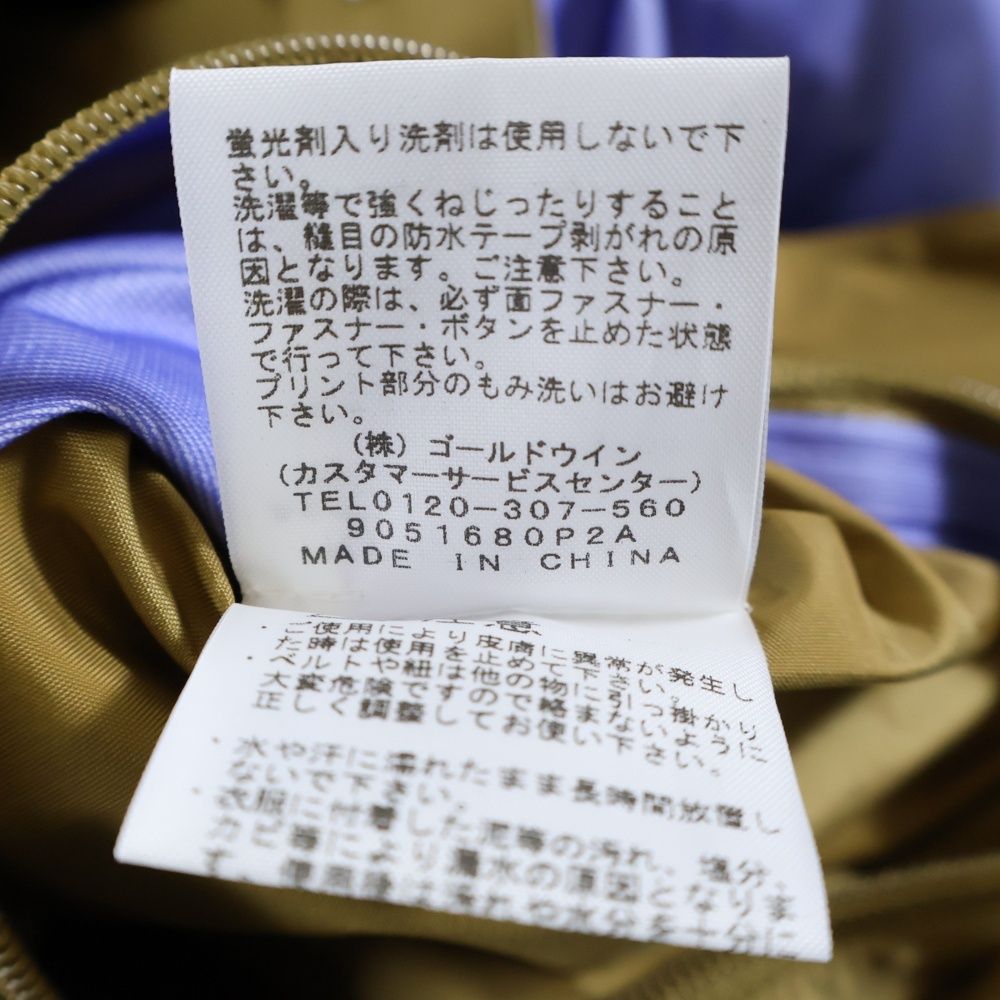 蛍光剤入り洗剤は使用しないで下
さい。
洗濯等で強くねじったりすること
は、縫目の防水テープ剥がれの原
因となります。ご注意下さい。
洗濯の際は、必ず面ファスナー・
ファスナー・ボタンを止めた状態
で行って下さい。
プリント部分のもみ洗いはお避け
下さい。
(株)ゴールドウイン
(カスタマーサービスセンター)
TEL0120-307-560
9051680P2A
MADE IN CHINA
注意
・ご使用により皮膚に異常が発生し
た時は使用を止めて下さい。
・ベルトや紐は他の物に引っ掛かり
大変危険ですので絡まないように
正しく調整してお使い下さい。
・水や汗に濡れたまま長時間放置し
ないで下さい。
・衣服に付着した泥等の汚れ、塩分、
カビ等により漏水の原因となりま